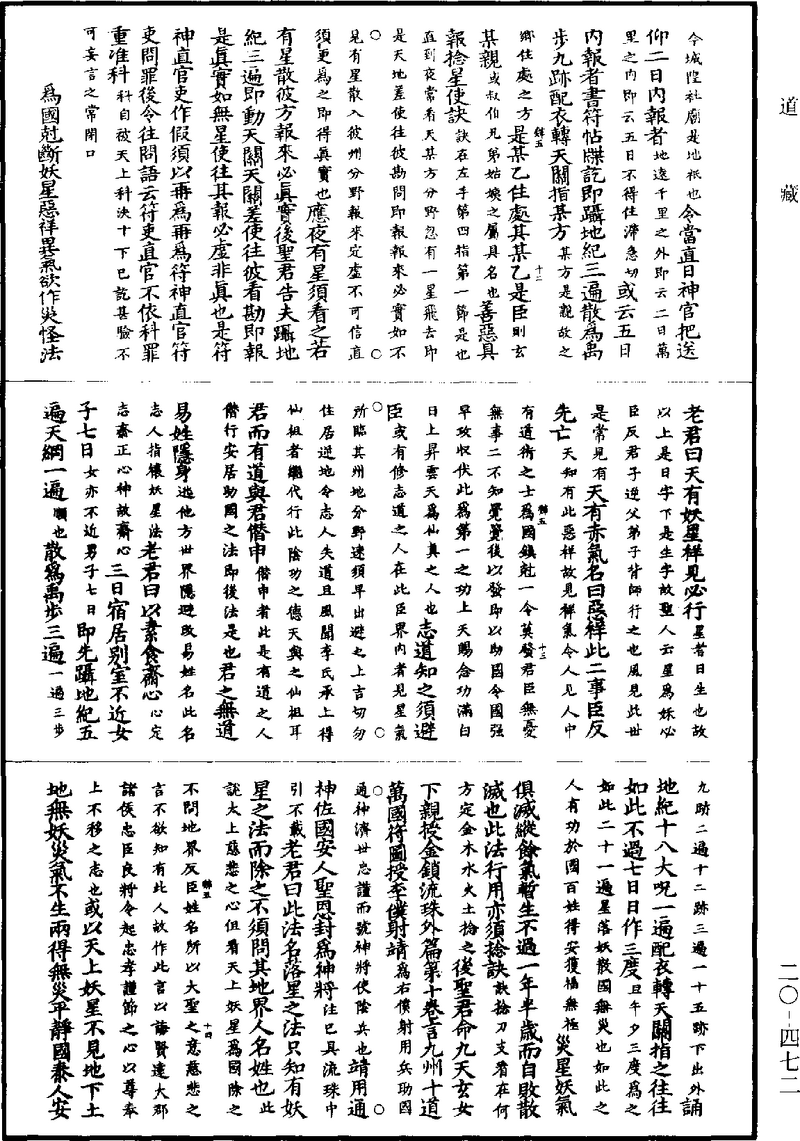 道藏
二〇-四七二
今城隍社廟是地祇也令當直日神官把送
仰二日内報者地遠千里之外即云二日萬
里之内即云五日不得住滯急切或云五日
内報者書符帖牒訖即躡地紀三遍散為禹
步九跡配衣轉天關指某方某方是親故之
鄉住處之方是某乙住處其某乙是臣則玄
某親或叔伯兄弟姑嫂之屬具名也善惡具
報捻星使訣訣在左手第四指第一節是也
直到夜常看天某方分野忽有一星飛去即
是天地差使往彼勘問即報報來必實如不
見有星散入彼州分野報來定虛不可信直
須更為之即得真實也應夜有星須看之若
有星散彼方報來必真實後聖君告夫躡地
紀三遍即動天關天關差使往彼看勘即報
是真實如無星使往其報必虛非真也是符
神直官吏作假須以再為再為符神直官符
吏問罪後令往問語云符吏直官不依科罪
重准科科自被天上科決十下已訖甚驗不
可妄言之常閉口
為國尅斷妖星惡祥異炁欲作災怪法
老君曰天有妖星祥見必行星若日生也故
以上是日字下是生字故聖人云星為妖必
臣反君子逆父弟子背師行之也風見此世
是常見有天有赤氣名曰惡祥此二事臣反
先亡天知有此惡祥故見祥氣令人見人中
有道術之士為國鎮尅一令莫發君臣無憂
無事二不知覺覺後以發即以助國令國強
早攻収伏此為第一之功上天賜合功滿白
日上昇雲天為仙真之人也志道知之須避
臣或有修志道之人在此臣界内者見星氣
所臨其州地分野速須早出避之上言切勿
住居逆地令志人失道且風聞李氏承上得
仙祖者繼代行此陰功之德天與之仙祖耳
君而有道與君僭申僭申者此是有道之人
僭行安居助國之法即後法是也君之無道
易姓隱身逃他方世界隱避改易姓名此名
志人指穰妖星法老君曰以素食齋心心定
志齋正心神故齋心三日宿居别室不近女
子七日女亦不近男子七日即先躡地紀五
遍天綱一遍順也散為禹步三遍一過三步
九跡二遍十二跡三遍一十五跡下出外誦
地紀十八大呪一遍配衣轉天關指之往往
如此不過七日日作三度旦午夕三度為之
如此二十一遍星落妖散國無災也如此之
人有功於國百姓得安獲福無極災星妖氣
俱滅縱餘氣暫生不過一年半歲而自敗散
滅也此法行用亦須捻訣訣捻刀支看在何
方定金木水火土捻之後聖君命九天玄女
下親授金鎖流珠外篇第十卷言九州十道
萬國符圖授李僕射靖為右僕射用兵功國
通神濟世忠謹而號神將使陰兵也靖用通
神佐國安人聖恩封為神將注已具流珠中
引不載老君曰此法名落星之法只知有妖
星之法而除之不須問其地界人名姓也此
說太上慈悲之心但看天上妖星為國除之
不問地界反臣姓名所以大聖之意慈悲之
言不欲知有此人故作此言以誨賢達大郡
諸侯忠臣良將令起忠孝謹節之心以尊奉
上不移之志也或以天上妖星不見地下土
地無妖災氣不生兩得無災平靜國泰人安